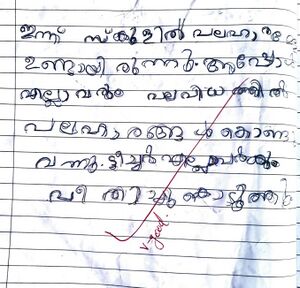 ഇന്ന് സ്കൂളിൽ പലഹാരമേള
ഉണ്ടായി രുന്നു. ആഘോ
എല്ലാവരും പലവിധത്തിൽ
പലഹാരങ്ങൾ കൊണ്ടു
വന്നു. ടീച്ചർ എല്ലാവർക്കും
വീതിച്ചു കൊടുത്തു
v-good